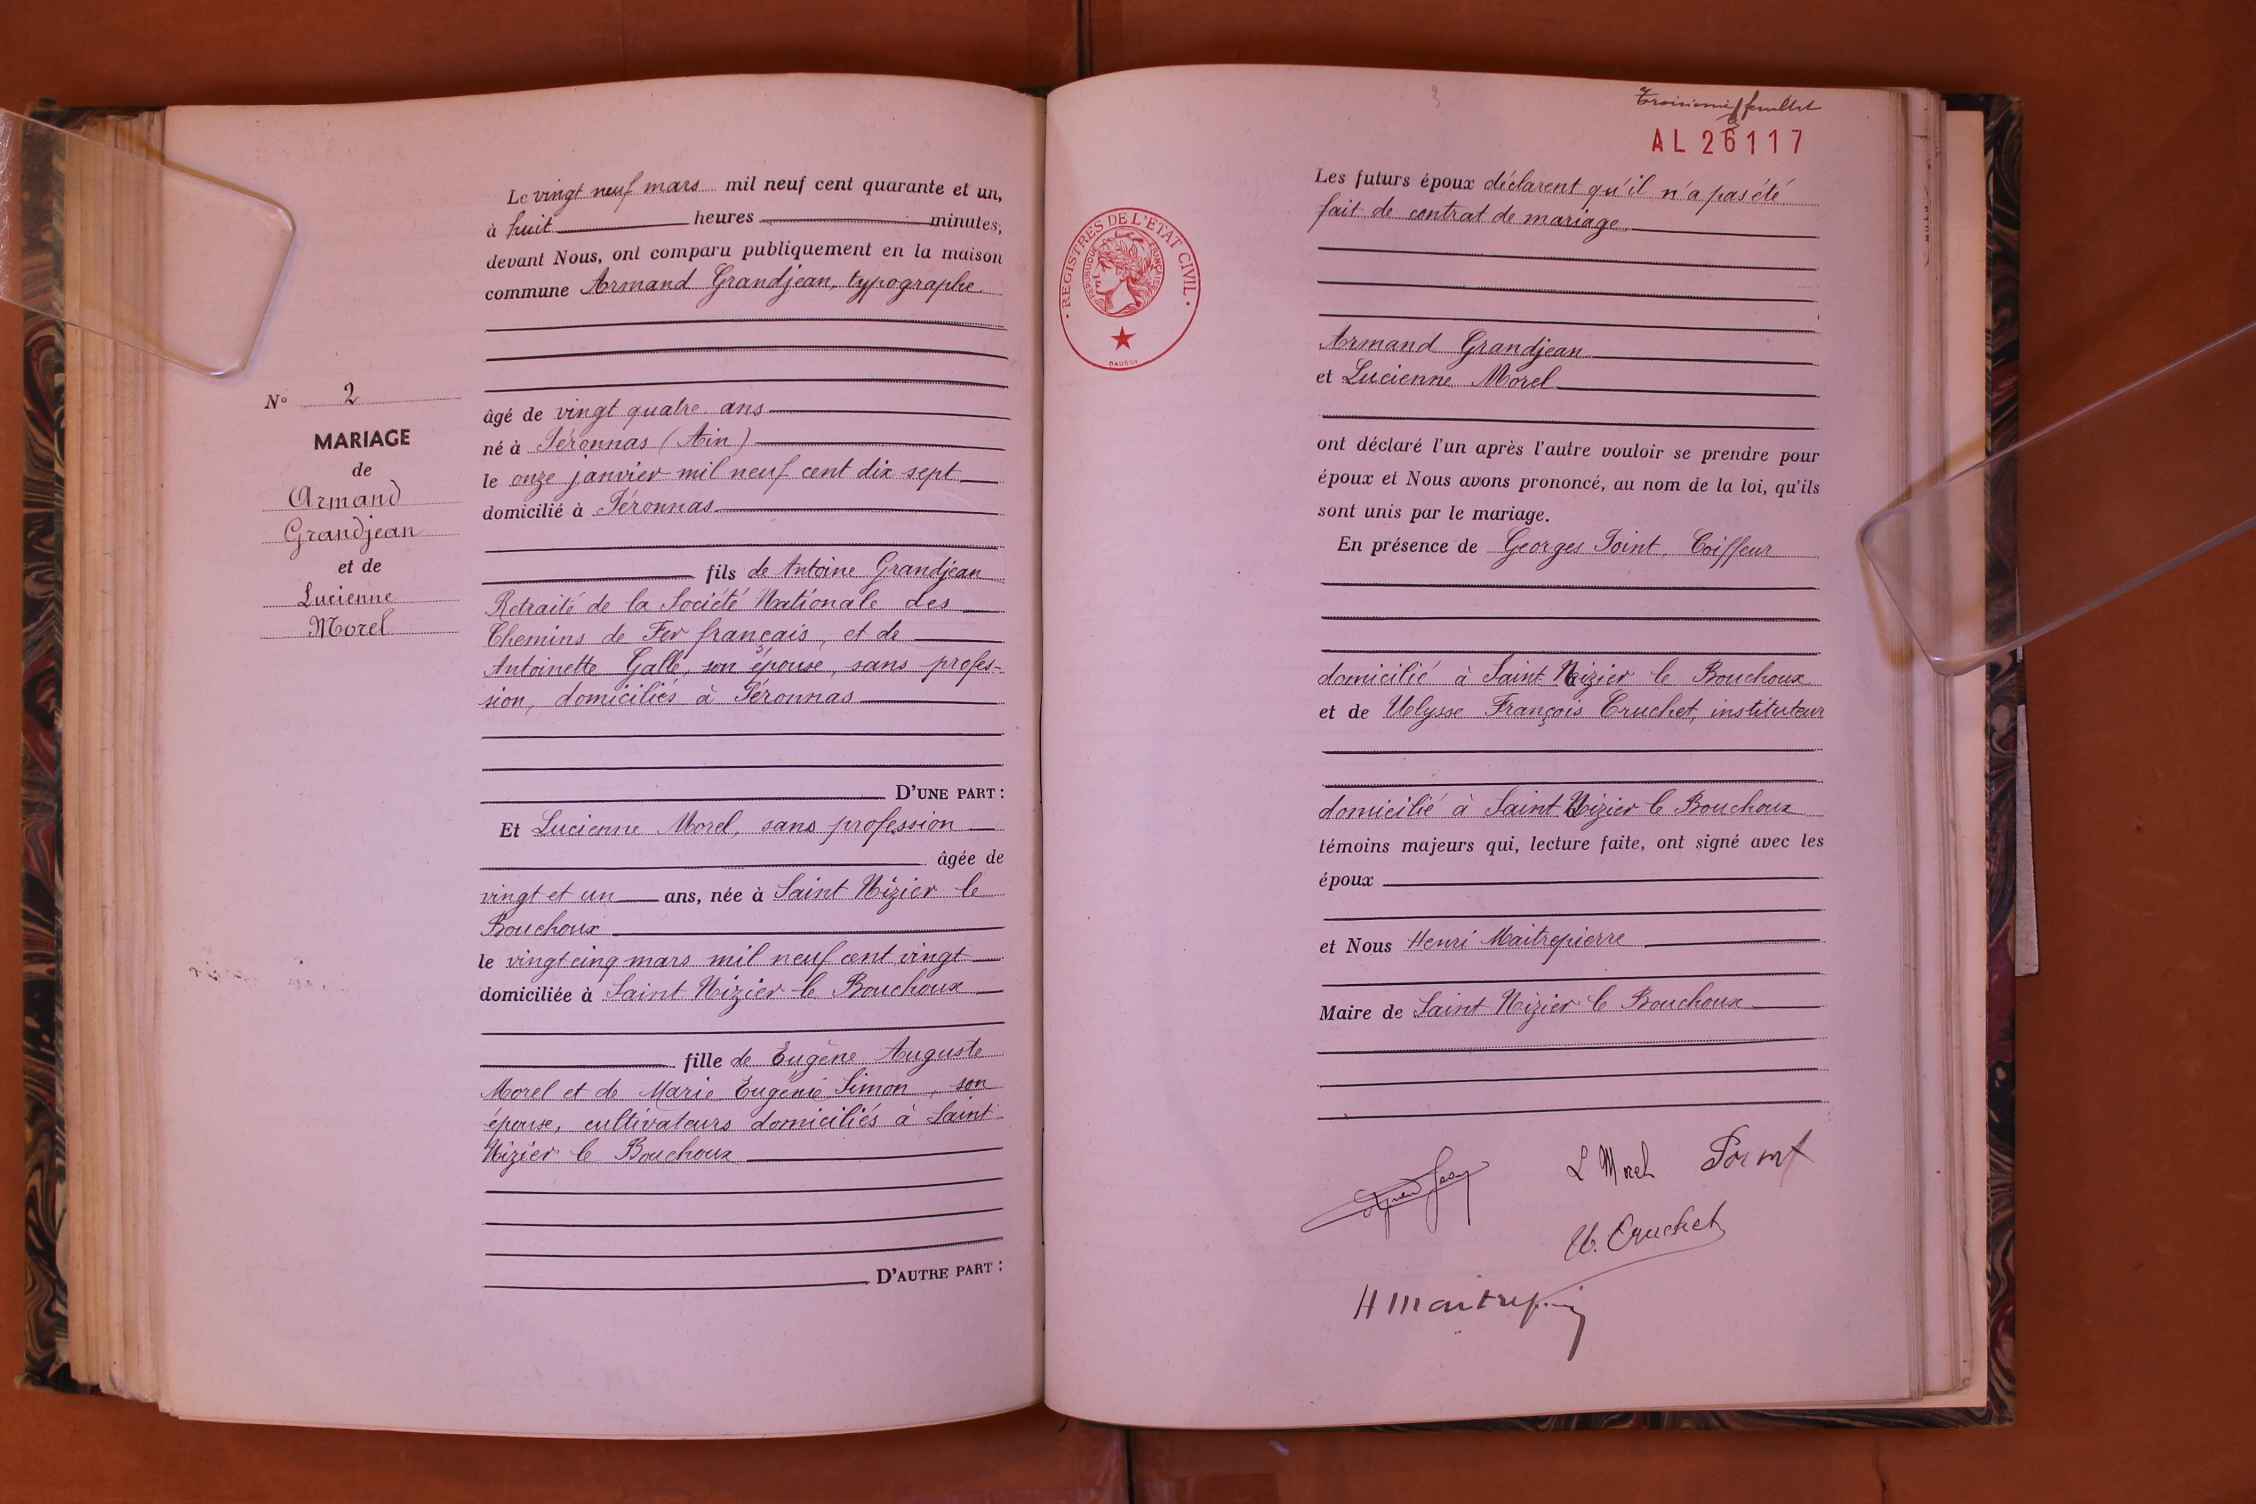 N° 2
MARIAGE
de
Armand
Grandjean
et de
Lucienne
Morel
Le vingt neuf mars mil neuf cent quarante et un,
à huit heures minutes,
devant Nous, ont comparu publiquement en la maison
commune Armand Grandjean, typographe
âgé de vingt quatre ans
né à Péronnas (Ain)
le onze janvier mil neuf cent dix sept
domicilié à Péronnas
fils de Antoine Grandjean
Retraité de la Société Nationale des
Chemins de Fer français, et de
Antoinette Galle, son épouse, sans profes-
sion, domiciliés à Péronnas
D'UNE PART :
Et Lucienne Morel, sans profession
âgée de
vingt et un ans, née à Saint Nizier le
Bouchoux
le vingt cinq mars mil neuf cent vingt
domiciliée à Saint Nizier le Bouchoux
fille de Eugène Auguste
Morel et de Marie Eugénie Simon, son
épouse, cultivateurs domiciliés à Saint
Nizier le Bouchoux
D'AUTRE PART :
3
Troisième feuillet
AL 26117
REGISTRES DE L'ÉTAT CIVIL
RÉPUBLIQUE FRANÇAISE
Les futurs époux déclarent qu'il n'a pas été
fait de contrat de mariage
Armand Grandjean
et Lucienne Morel
ont déclaré l'un après l'autre vouloir se prendre pour
époux et Nous avons prononcé, au nom de la loi, qu'ils
sont unis par le mariage.
En présence de Georges Point, Coiffeur
domicilié à Saint Nizier le Bouchoux
et de Ulysse François Cruchet, instituteur
domicilié à Saint Nizier le Bouchoux
témoins majeurs qui, lecture faite, ont signé avec les
époux
et Nous Henri Maitrepierre
Maire de Saint Nizier le Bouchoux
L Morel Point
U. Cruchet